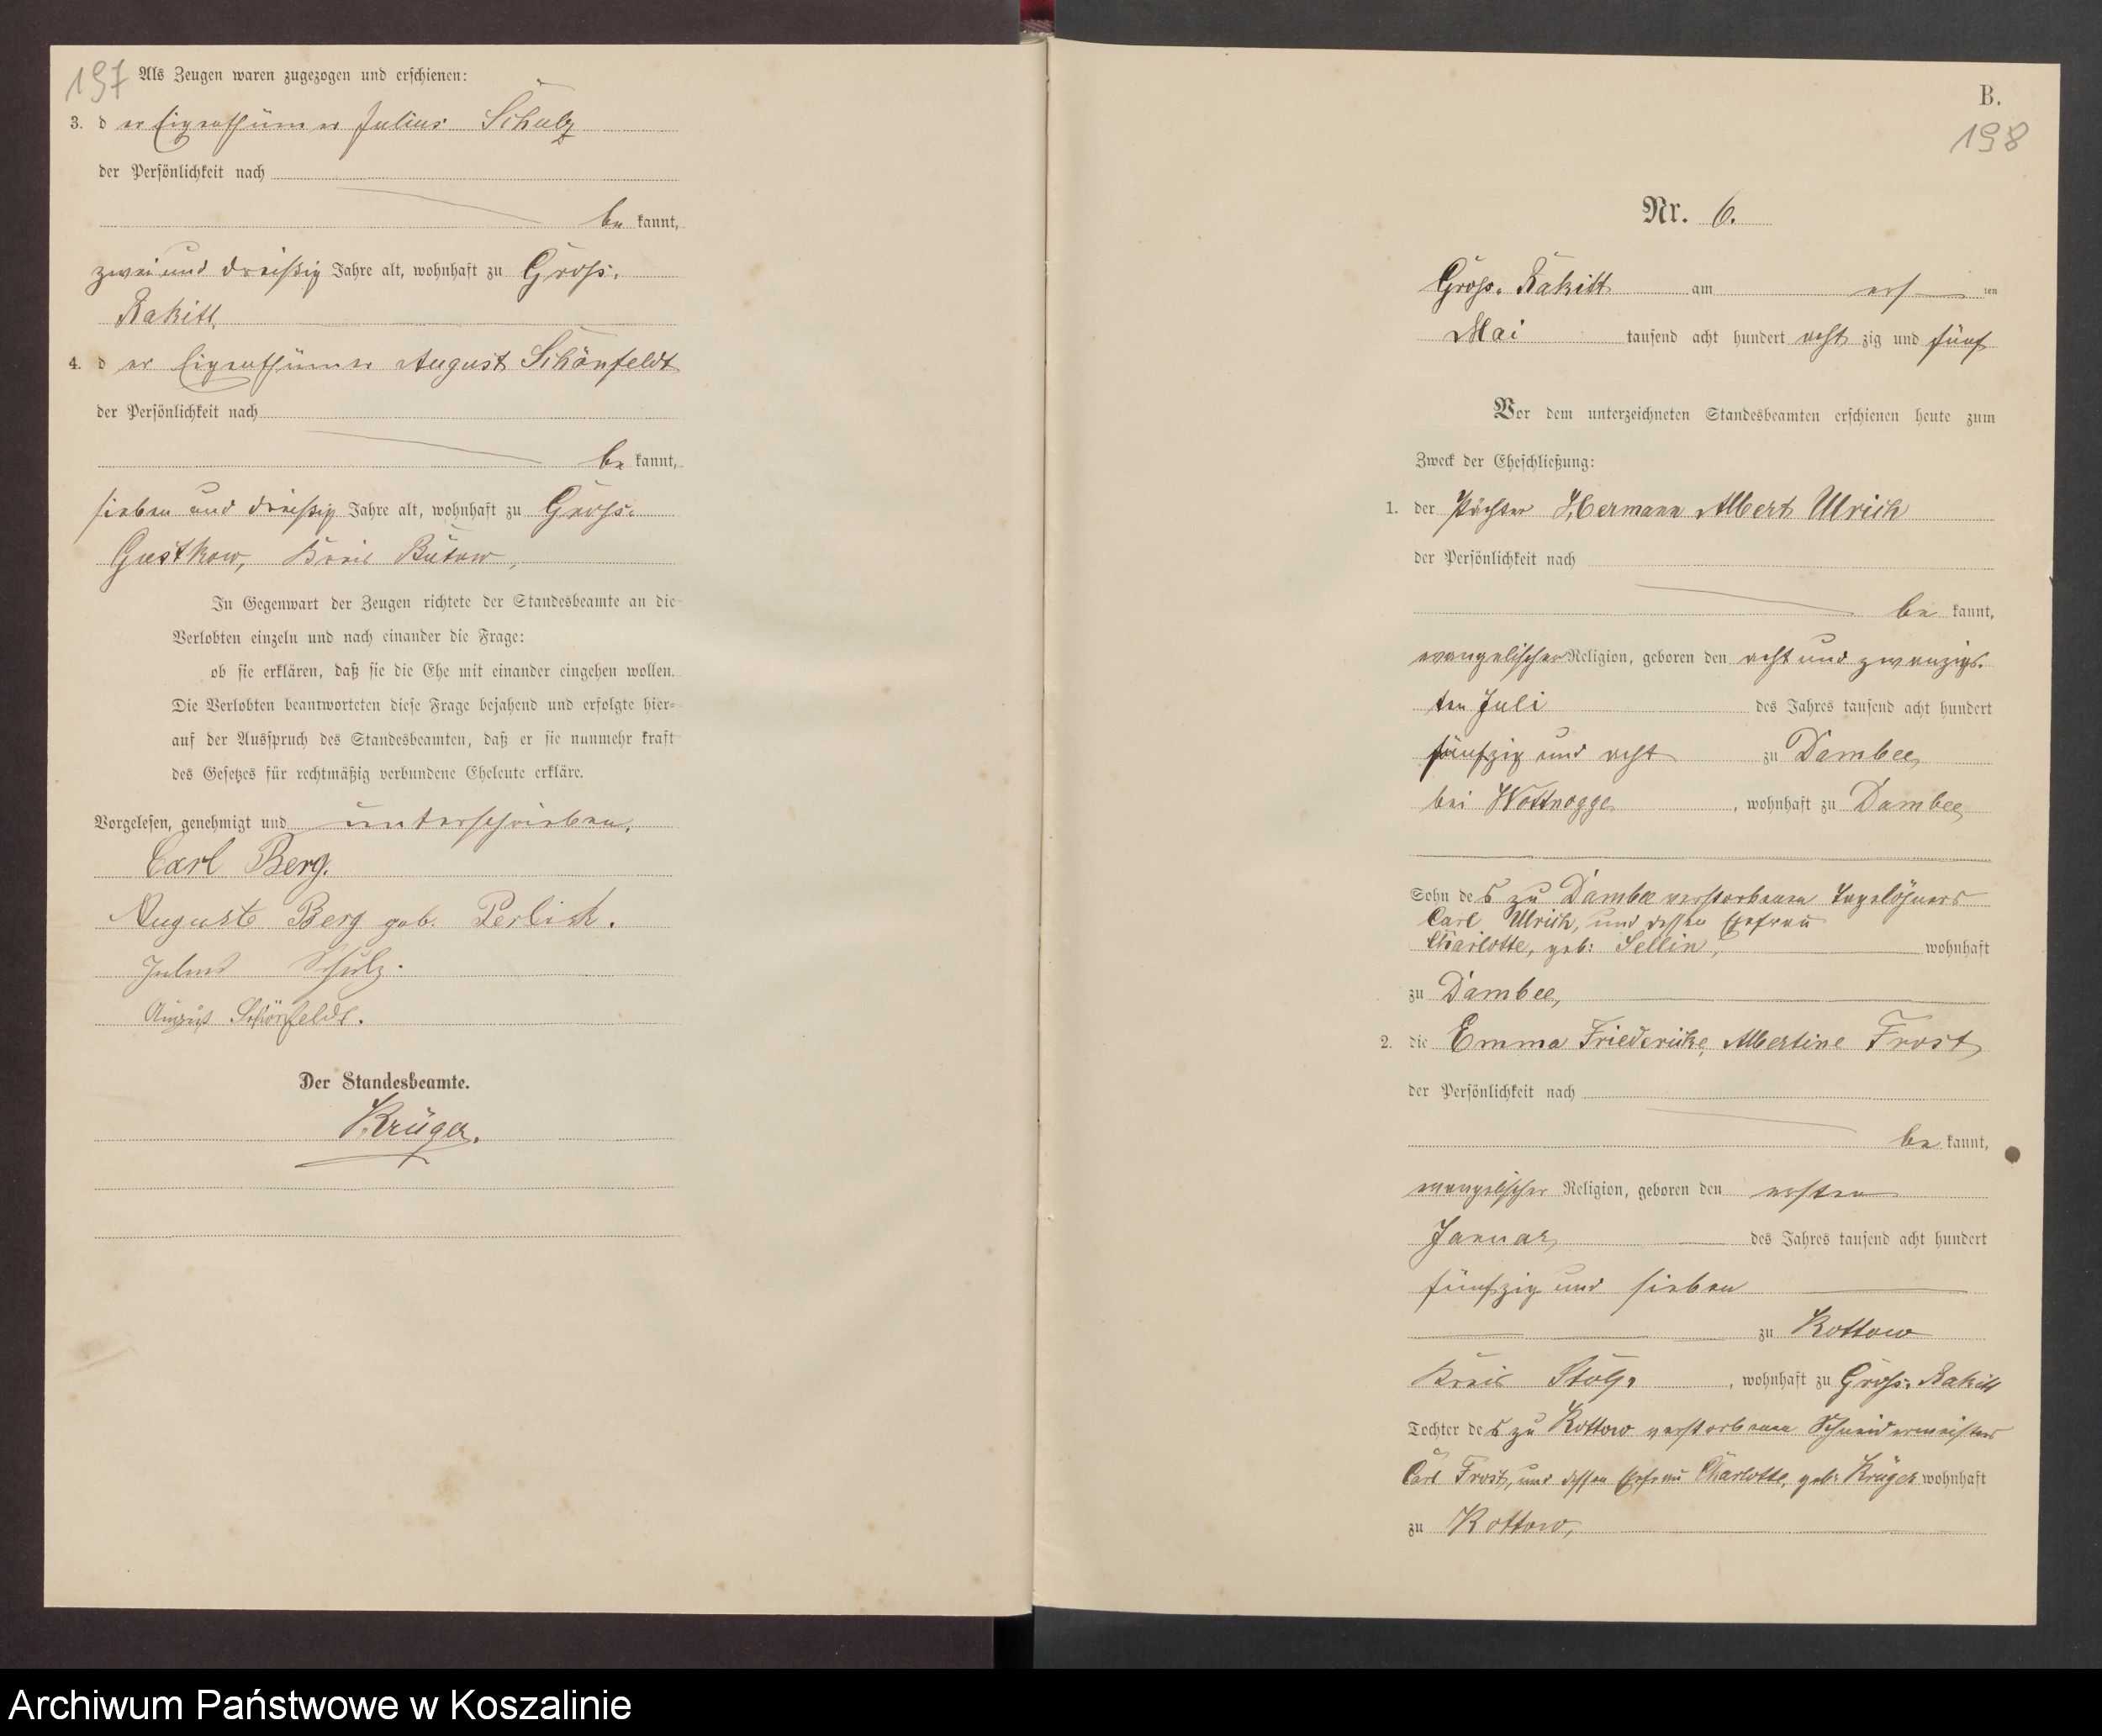 197
Als Zeugen waren zugezogen und erschienen:
3. d er Eigenthümer Julius Schulz
der Persönlichkeit nach
be kannt,
zwei und dreißig Jahre alt, wohnhaft zu Groß-
Rakitt,
4. d er Eigenthümer August Schönfeldt
der Persönlichkeit nach
be kannt,
sieben und dreißig Jahre alt, wohnhaft zu Groß-
Gustkow, Kreis Bütow,
In Gegenwart der Zeugen richtete der Standesbeamte an die
Verlobten einzeln und nach einander die Frage:
ob sie erklären, daß sie die Ehe mit einander eingehen wollen.
Die Verlobten beantworteten diese Frage bejahend und erfolgte hier-
auf der Ausspruch des Standesbeamten, daß er sie nunmehr kraft
des Gesetzes für rechtmäßig verbundene Eheleute erkläre.
Vorgelesen, genehmigt und unterschrieben,
Carl Berg.
Auguste Berg geb. Perlick.
Julius Schulz.
August Schönfeldt.
Der Standesbeamte.
Krüger.
B.
198
Nr. 6.
Groß-Rakitt am ersten
Mai tausend acht hundert acht zig und fünf
Vor dem unterzeichneten Standesbeamten erschienen heute zum
Zweck der Eheschließung:
1. der Pächter Hermann Albert Ulrich
der Persönlichkeit nach
be kannt,
evangelischer Religion, geboren den acht und zwanzigs-
ten Juli des Jahres tausend acht hundert
fünfzig und acht zu Dambee,
bei Wottnogge, wohnhaft zu Dambee,
Sohn des zu Dambee verstorbenen Tagelöhners
Carl Ulrich, und dessen Ehefrau
Charlotte, geb: Sellin, wohnhaft
zu Dambee,
2. die Emma Friedericke, Albertine Frost,
der Persönlichkeit nach
be kannt,
evangelischer Religion, geboren den ersten
Januar, des Jahres tausend acht hundert
fünfzig und sieben
zu Kottow
Kreis Stolp, wohnhaft zu Groß-Rakitt
Tochter des zu Kottow verstorbenen Schneidermeisters
Carl Frost, und dessen Ehefrau Charlotte, geb: Krüger wohnhaft
zu Kottow,
Archiwum Państwowe w Koszalinie